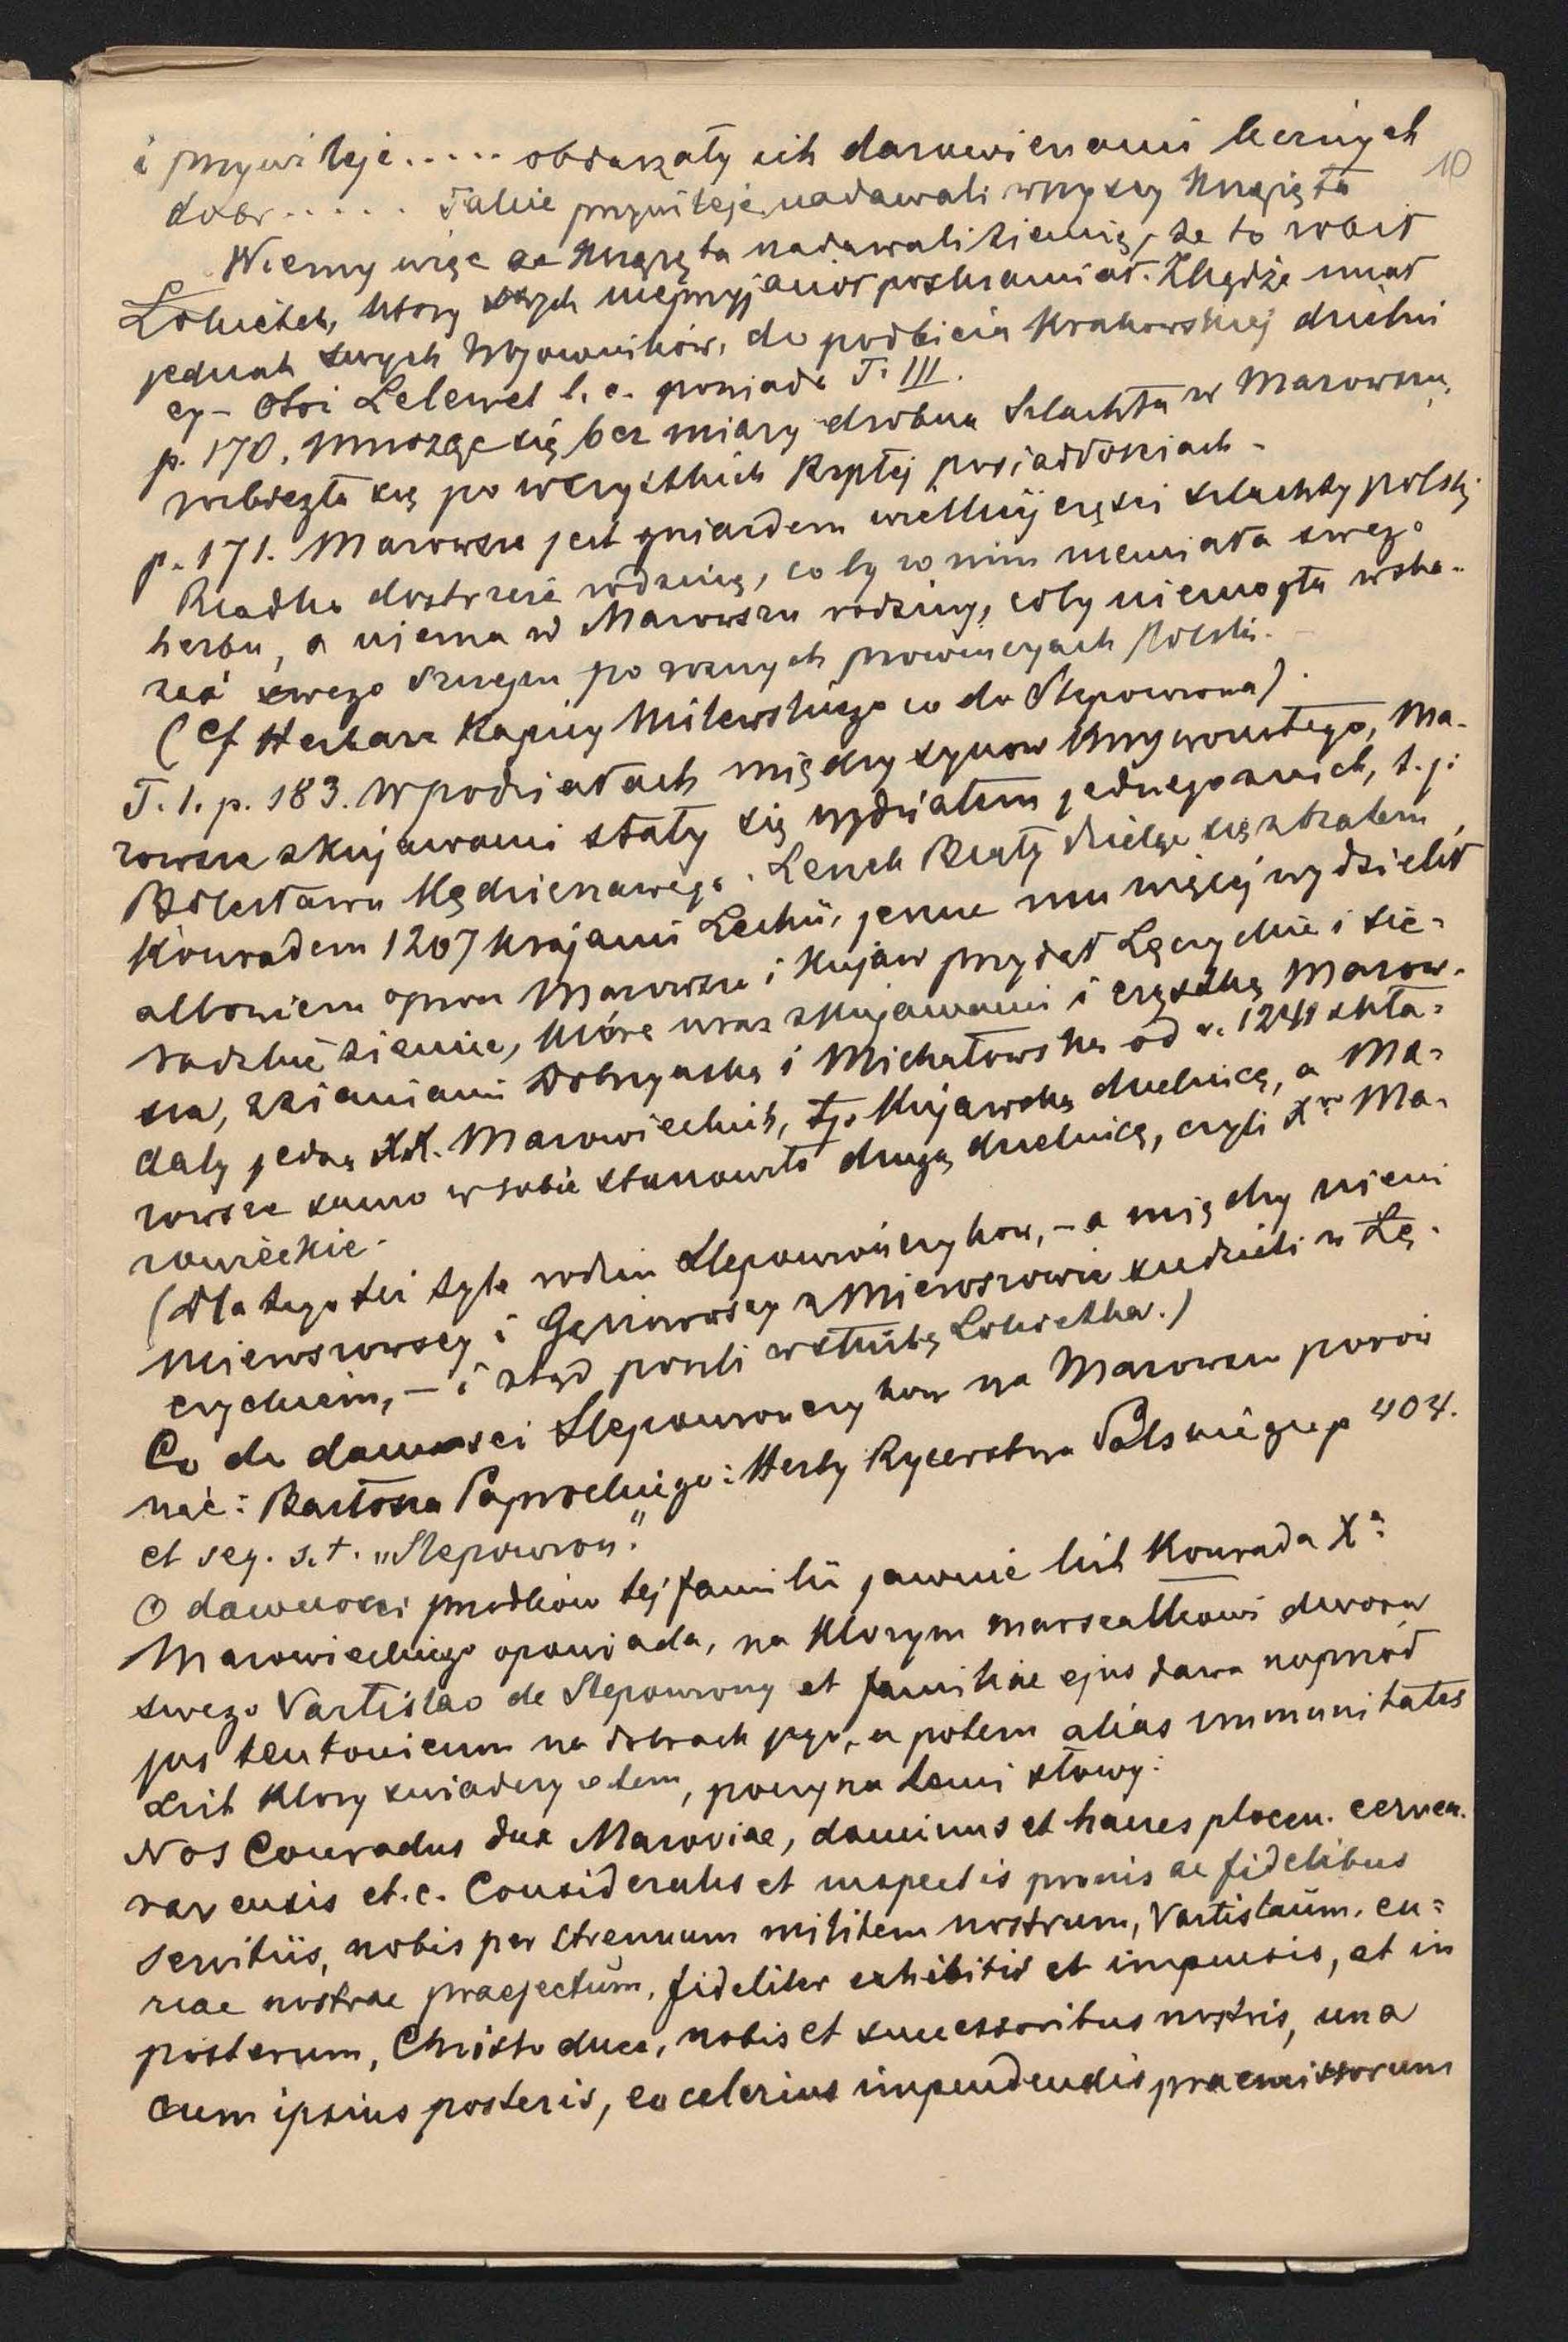 i przywileje..... obdarzały ich darowiznami licznych
10
dobr...... Takie przywileje nadawali wszyscy Książęta
Wiemy więc że Książęta nadawali ziemię, że to robił
Łokietek, ktory swych nieprzyjaciół poskramiał. Zkądże miał
jednak swych Wojowników, do podbicia Krakowskiej dzielni
cy - Otoż Lelewel l. c. powiada T. III.
p. 170. Mnożąc się bez miary drobna Szlachta w Mazowszu,
rozbiegła się po wszystkich Rzptej posiadłosciach -
p. 171. Mazowsze jest gniazdem wielkiej częsci szlachty polskij
Rzadko dostrzeże rodzinę, co by w nim niemiała swego
herbu, a niema w Mazowszu rodziny, coby niemogła wska-
zać swego szczepu po roznych prowincyach Polski. -
(Cf Herbarz Kapicy Milewskiego co do Slepowrona).
T. 1. p. 183. W podziałach między synow Krzywoustego, Ma-
zowsze z Kujawami stały się wydziałem jednego z nich, t. j:
Bolesława Kędzierzawego. Leszek Biały dzieląc się z bratem
Konradem 1207 krajami Lechii, jeszcze mu więcej wydzielił
albowiem oprocz Mazowsza i Kujaw przydał Łęczyckie i Sie-
radzkie ziemie, które wraz z Kujawami i częstką Mazow-
sza, z ziemiami Dobrzyńską i Michałowską od r. 1241 skła-
dały jedną XX. Mazowieckich, tj. Kujawską dzielnicę, a Ma-
zowsze samo w sobie stanowiło drugą dzielnicę, czyli Xwo Ma-
zowieckie.
(Dla tego też tyle rodzin Slepowrończykow, - a między niemi
Mieroszowscy i Gąsiorowscy z Mieroszowic siedzieli w Łę-
czyckiem, - i ztąd poszli w służbę Łokietka.)
Co do dawnosci Slepowronczykow na Mazowszu porów
nać: Bartosza Paprockiego: Herby Rycerstwa Polskiego p 404.
et seq. s. t. „Slepowron."
O dawnosci przodków tej familii jawnie list Konrada Xa
Mazowieckiego opowiada, na ktorym marszałkowi dworu
swego Vartislao de Slepowrony et familiae ejus dawa naprzód
jus teutonicum na dobrach jego, a potem alias immunitates
List ktory swiadczy o tem, poczyna temi słowy:
Nos Conradus dux Mazoviae, dominus et haeres plocen. cernen.
ravensis et. c. Consideratis et inspectis pronis ac fidelibus
servitiis, nobis per strenuum militem nostrum, Vartislaum, cu-
riae nostrae praefectum, fideliter exhibitis et impensis, et in
posterum, Christo duce, nobis et successoribus nostris, una
cum ipsius posteris, eo celerius impendendis praemissorum